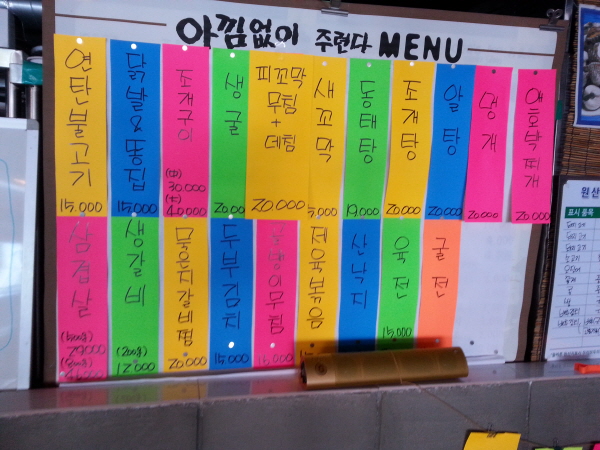 아낌없이 주련다 MENU
연탄불고기
15,000
닭발&똥집
15,000
조개구이
(中)
30.000
(大)
40,000
생굴
20,000
피꼬막
무침
+
데침
20,000
새꼬막
동태탕
19,000
조개탕
20,000
알탕
20,000
멍개
20,000
애호박찌개
20,000
삼겹살
생갈비
(200g)
12,000
묵은지갈비찜
20,000
두부김치
15,000
무침
15,000
제육볶음
산낙지
육전
15,000
굴전
원산
표시 품목